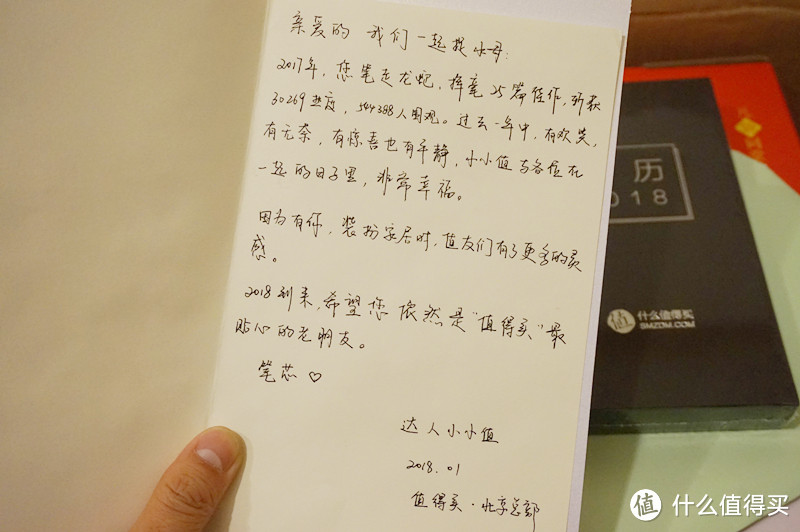 亲爱的 我们一起捉水母:
2017年,您笔走龙蛇,挥毫25篇佳作,斩获
30269热度,544388人围观。过去一年中,有欢笑,
有无奈,有惊喜也有平静,小小值与各位在
一起的日子里,非常幸福。
因为有你,装扮家居时,值友们有了更多的灵
感。
2018到来,希望您依然是“值得买”最
贴心的老朋友。
笔芯♡
达人小小值
2018.01
值得买·北京总部
历
018
值 什么值得买
SMZDM.COM
值 什么值得买